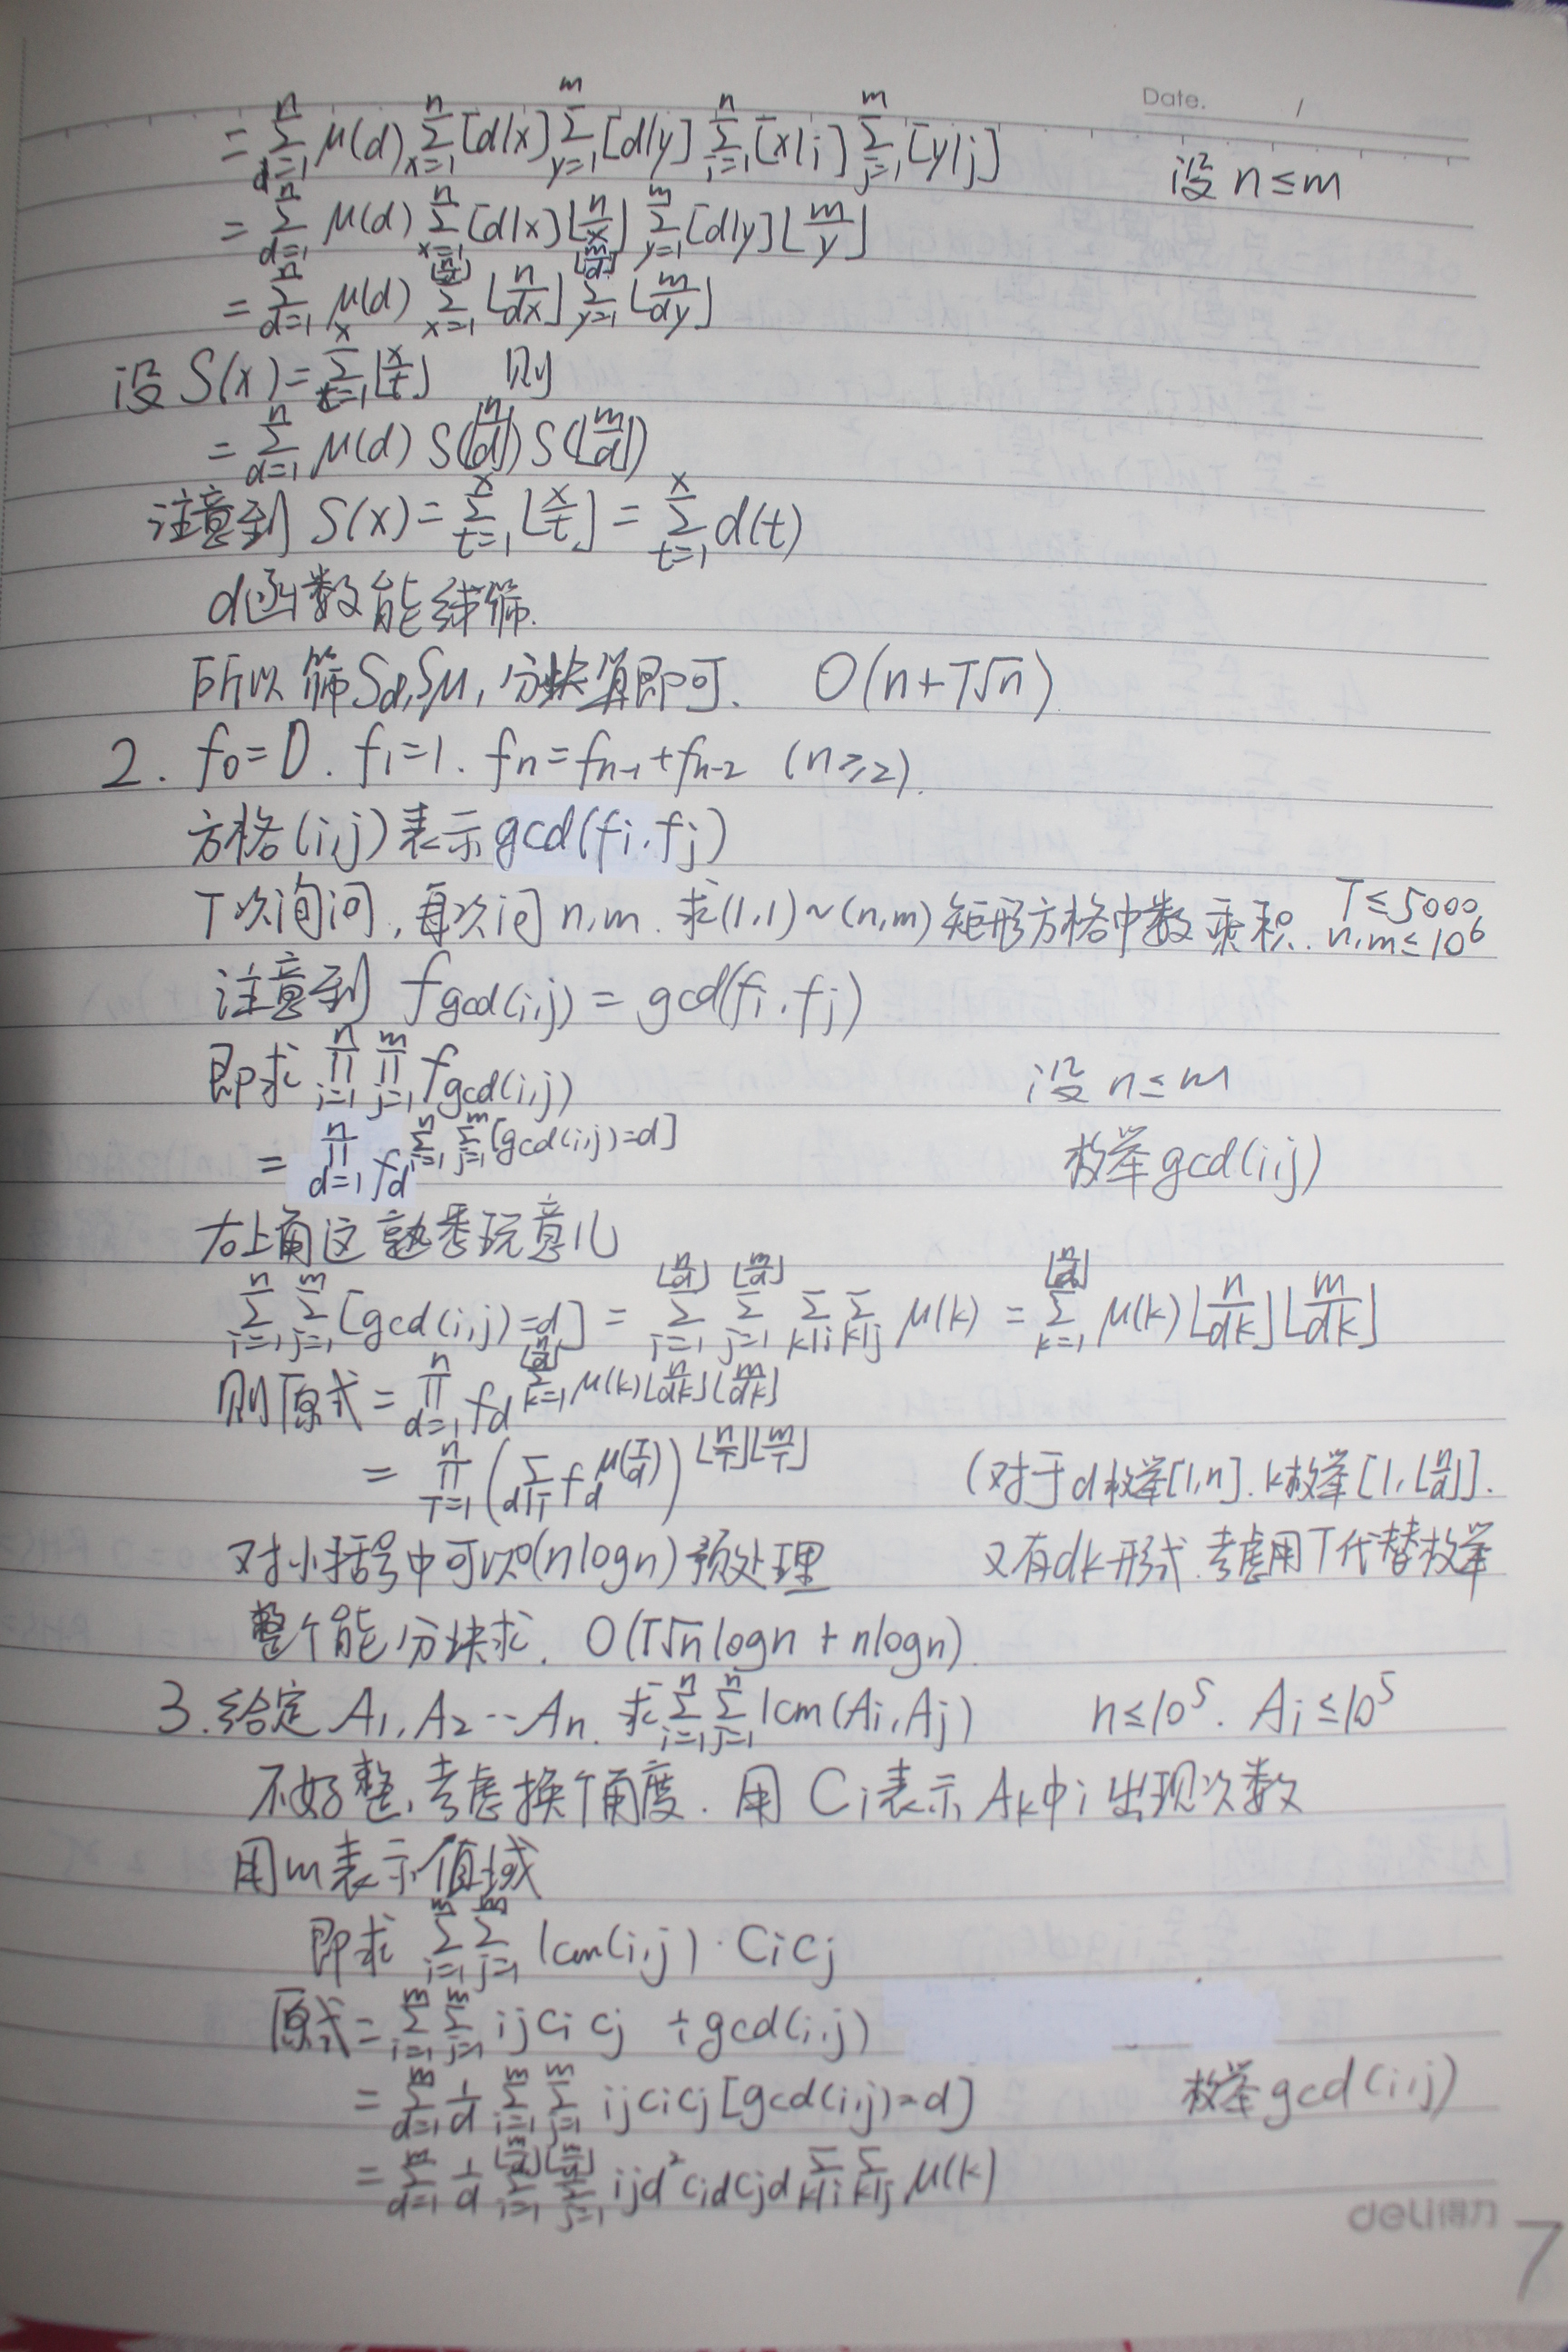 Date. /
= ∑_{d=1}^{n} μ(d) ∑_{x=1}^{n} [d|x] ∑_{y=1}^{m} [d|y] ∑_{i=1}^{n} [x|i] ∑_{j=1}^{m} [y|j] 设 n≤m
= ∑_{d=1}^{n} μ(d) ∑_{x=1}^{n} [d|x]⌊n/x⌋ ∑_{y=1}^{m} [d|y]⌊m/y⌋
= ∑_{d=1}^{n} μ(d) ∑_{x=1}^{⌊n/d⌋} ⌊n/dx⌋ ∑_{y=1}^{⌊m/d⌋} ⌊m/dy⌋
设 S(x)=∑_{t=1}^{x}⌊x/t⌋ 则
= ∑_{d=1}^{n} μ(d) S(⌊n/d⌋) S(⌊m/d⌋)
注意到 S(x)=∑_{t=1}^{x}⌊x/t⌋=∑_{t=1}^{x} d(t)
d函数能线筛.
所以筛Sd,Sμ,分块算即可. O(n+T√n)
2. f₀=0. f₁=1. fₙ=fₙ₋₁+fₙ₋₂ (n≥2).
方格(i,j)表示gcd(fi.fj)
T次询问,每次问n,m.求(1,1)~(n,m)矩形方格中数乘积. T≤5000 n,m≤10⁶
注意到 f_{gcd(i,j)} = gcd(fi.fj)
即求 ∏_{i=1}^{n} ∏_{j=1}^{m} f_{gcd(i,j)} 设 n≤m
= ∏_{d=1}^{n} f_d^{∑_{i=1}^{n} ∑_{j=1}^{m} [gcd(i,j)=d]} 枚举gcd(i,j)
右上角这熟悉玩意儿
∑_{i=1}^{n} ∑_{j=1}^{m} [gcd(i,j)=d] = ∑_{i=1}^{⌊n/d⌋} ∑_{j=1}^{⌊m/d⌋} ∑_{k|i} ∑_{k|j} μ(k) = ∑_{k=1}^{⌊n/d⌋} μ(k)⌊n/dk⌋⌊m/dk⌋
则原式= ∏_{d=1}^{n} f_d^{∑_{k=1}^{⌊n/d⌋} μ(k)⌊n/dk⌋⌊m/dk⌋}
= ∏_{T=1}^{n} (∑_{d|T} f_d^{μ(T/d)})^{⌊n/T⌋⌊m/T⌋} (对于d枚举[1,n].k枚举[1,⌊n/d⌋].
对小括号中可以O(nlogn)预处理 又有dk形式.考虑用T代替枚举
整个能分块求. O(T√n logn + nlogn)
3.给定A₁,A₂⋯Aₙ.求∑_{i=1}^{n} ∑_{j=1}^{n} lcm(Ai,Aj) n≤10⁵. Ai≤10⁵
不好整,考虑换个角度.用Ci表示Ak中i出现次数
用m表示值域
即求 ∑_{i=1}^{m} ∑_{j=1}^{m} lcm(i,j)·CiCj
原式= ∑_{i=1}^{m} ∑_{j=1}^{m} ijCiCj ÷gcd(i,j)
= ∑_{d=1}^{m} 1/d ∑_{i=1}^{m} ∑_{j=1}^{m} ijCiCj[gcd(i,j)=d] 枚举gcd(i,j)
= ∑_{d=1}^{m} 1/d ∑_{i=1}^{⌊m/d⌋} ∑_{j=1}^{⌊m/d⌋} ijd²C_{id}C_{jd} ∑_{k|i} ∑_{k|j} μ(k)
deli得力 7